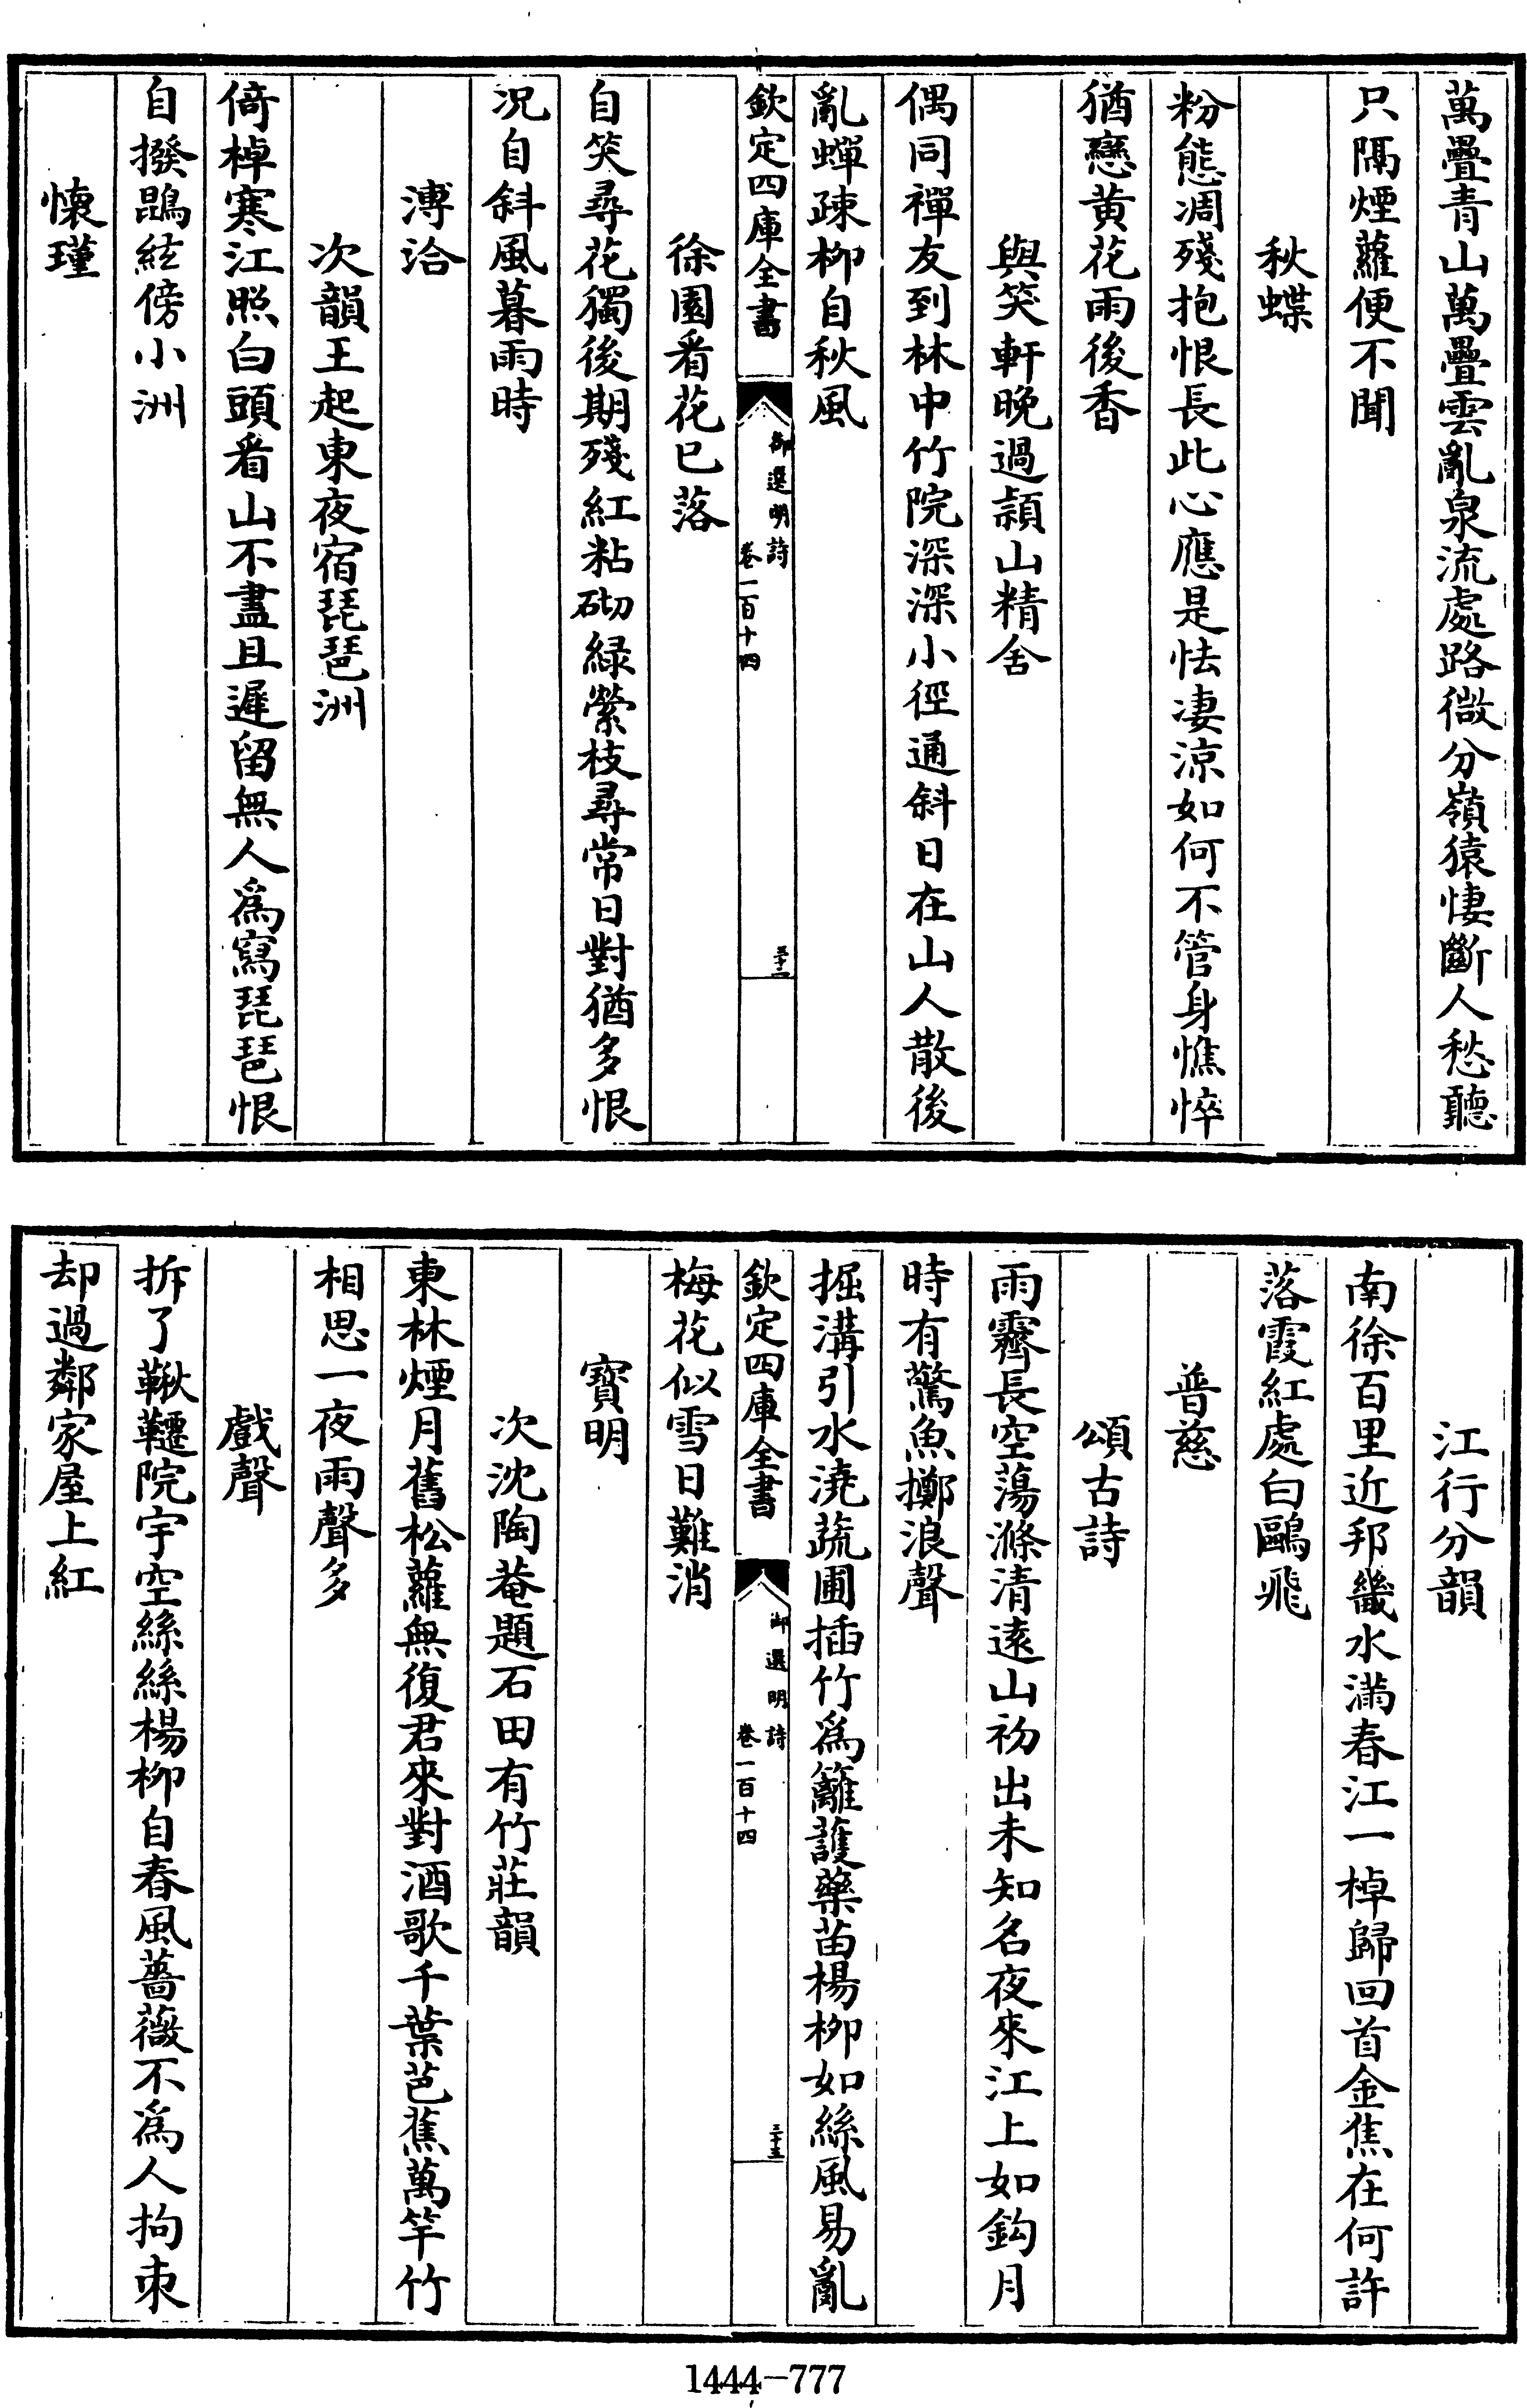 萬疊青山萬疊雲亂泉流處路微分嶺猿悽斷人愁聽
只隔煙蘿便不聞
秋蝶
粉態凋殘抱恨長此心應是怯凄涼如何不管身憔悴
猶戀黄花雨後香
與笑軒晚過頴山精舍
偶同禪友到林中竹院深深小徑通斜日在山人散後
亂蟬疎柳自秋風
欽定四庫全書
御選明詩
卷一百十四
徐園看花已落
自笑尋花獨後期殘紅粘砌緑縈枝尋常日對猶多恨
況自斜風暮雨時
溥洽
次韻王起東夜宿琵琶洲
倚棹寒江照白頭看山不盡且遲留無人爲寫琵琶恨
自撥鵾絃傍小洲
懷瑾
江行分韻
南徐百里近邦畿水滿春江一棹歸回首金焦在何許
落霞紅處白鷗飛
普慈
頌古詩
雨霽長空蕩滌清遠山初出未知名夜來江上如鈎月
時有驚魚擲浪聲
掘溝引水澆蔬圃插竹爲籬護藥苗楊柳如絲風易亂
欽定四庫全書
御選明詩
卷一百十四
三十五
梅花似雪日難消
寳明
次沈陶菴題石田有竹莊韻
東林煙月舊松蘿無復君來對酒歌千葉芭蕉萬竿竹
相思一夜雨聲多
戲聲
拆了鞦韆院宇空絲絲楊柳自春風薔薇不爲人拘束
却過鄰家屋上紅
1444-777